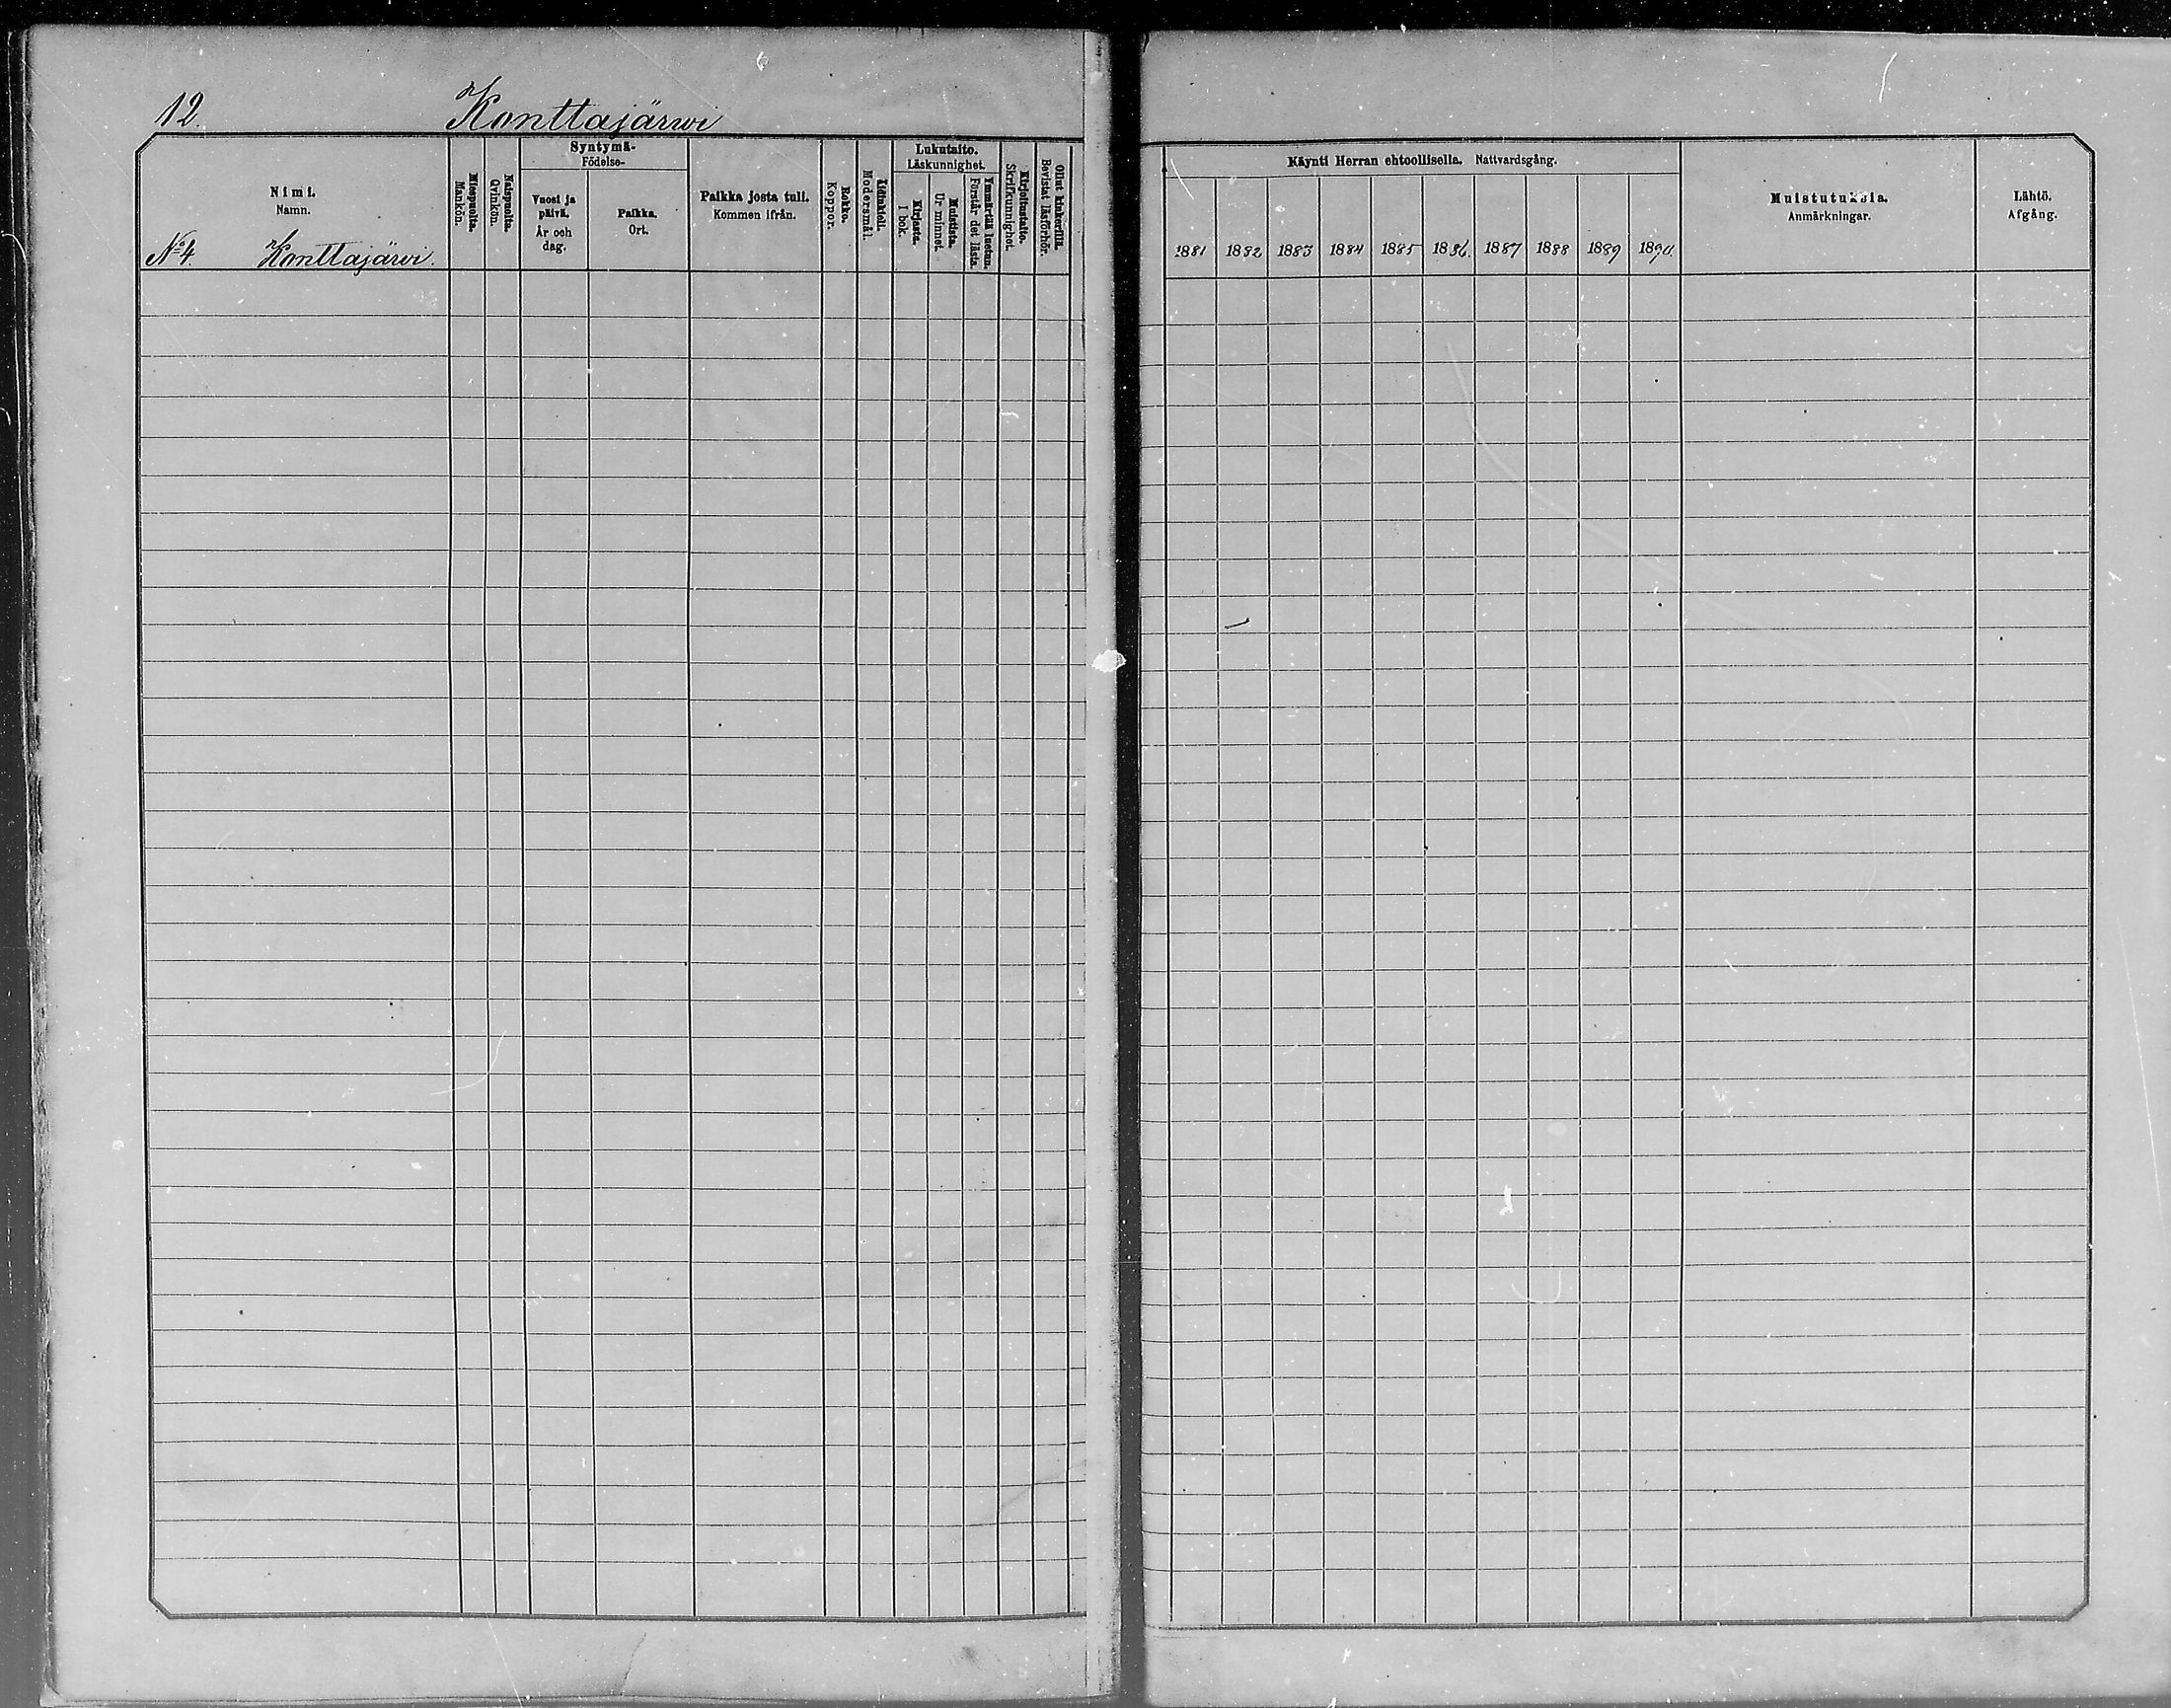 12.
Konttajärwi
Nimi.
Namn.
Nº 4. Konttajärwi.
Miespuolia.
Mankön.
Naispuolia.
Qvinkön.
Syntymä-
Födelse-
Vuosi ja
päivä.
År och
dag.
Paikka.
Ort.
Paikka josta tuli.
Kommen ifrån.
Rokko.
Koppor.
Äidinkieli.
Modersmål.
Lukutaito.
Läskunnighet.
Kirjasta.
I bok.
Muistista.
Ur minnet.
Ymmärtää luetun.
Förstår det lästa.
Kirjoitustaito.
Skrifkunnighet.
Ollut kinkerillä.
Bevistat läsförhör.
Käynti Herran ehtoollisella. Nattvardsgång.
1881 1882 1883 1884 1885 1886. 1887 1888 1889 1890.
Muistutuksia.
Anmärkningar.
Lähtö.
Afgång.